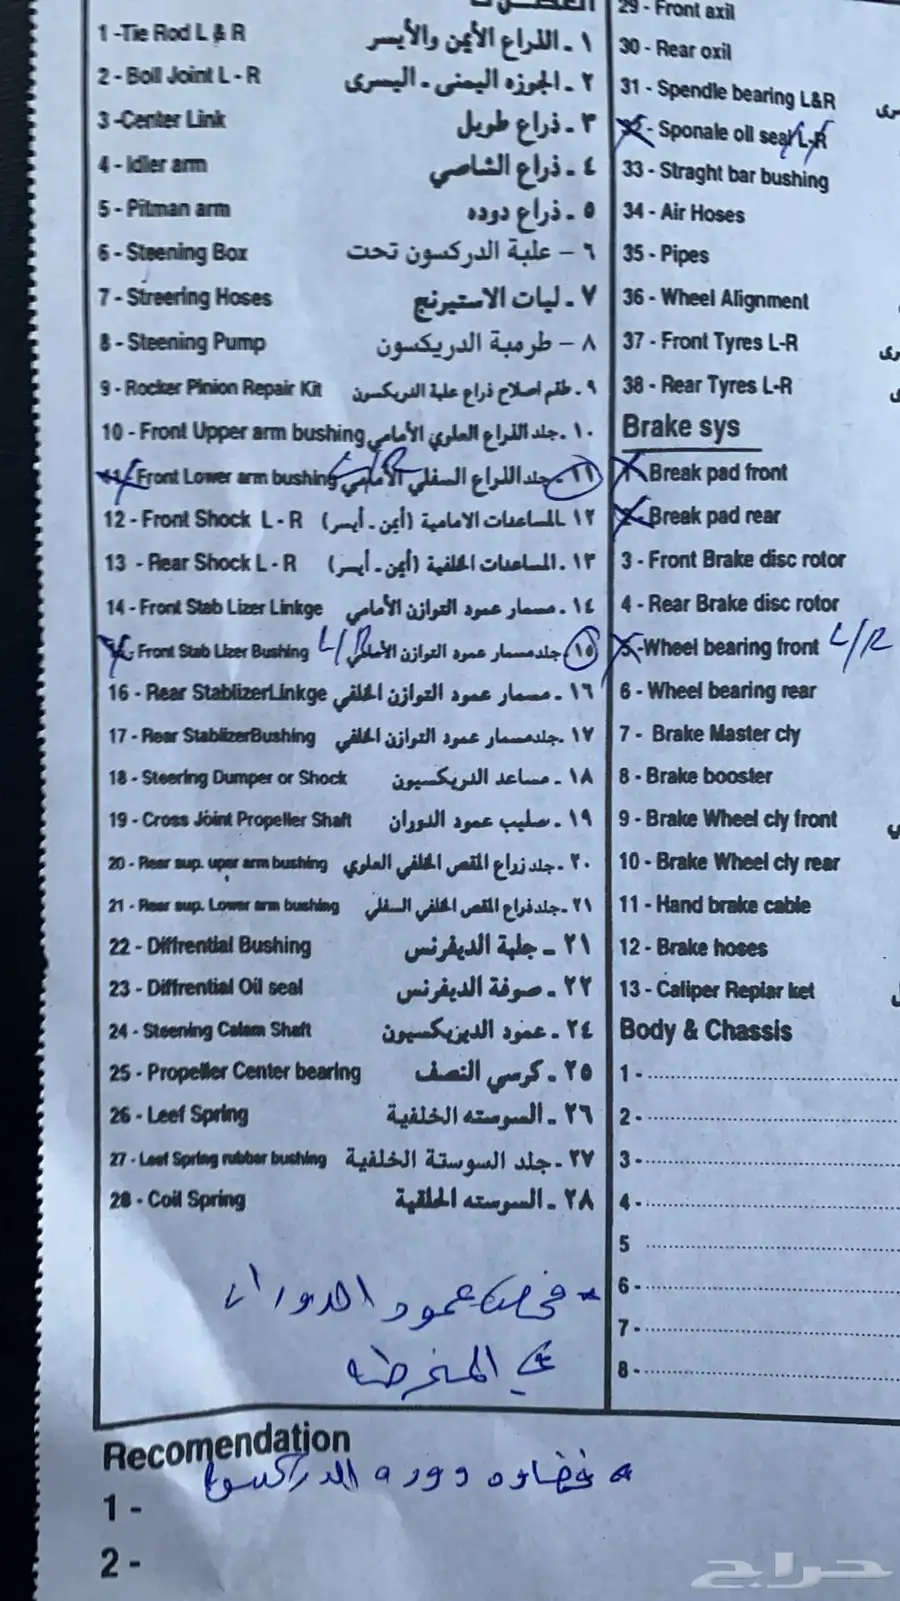 1 -Tie Rod L & R ١ ـ الذراع الأيمن والأيسر
2 - Boll Joint L - R ٢ ـ الجوزه اليمنى ـ اليسرى
3 -Center Link ٣ ـ ذراع طويل
4 - Idler arm ٤ ـ ذراع الشاصي
5 - Pitman arm ٥ ـ ذراع دوده
6 - Steening Box ٦ – علبة الدركسون تحت
7 - Streering Hoses ٧ ـ ليات الاستيرنج
8 - Steening Pump ٨ – طرمبة الدريكسون
9 - Rocker Pinion Repair Kit ٩ ـ طقم اصلاح ذراع علبة الدريكسون
10 - Front Upper arm bushing ١٠ ـ جلد الذراع العلوي الأمامي
11 - Front Lower arm bushing L/R ١١ ـ جلد الذراع السفلي الأمامي
12 - Front Shock L - R ١٢ ـ المساعدات الامامية (أيمن ـ أيسر)
13 - Rear Shock L - R ١٣ ـ المساعدات الخلفية (أيمن ـ أيسر)
14 - Front Stab Lizer Linkge ١٤ ـ مسمار عمود التوازن الأمامي
Front Stab Lizer Bushing L/R ١٥ ـ جلد مسمار عمود التوازن الأمامي
16 - Rear StablizerLinkge ١٦ ـ مسمار عمود التوازن الخلفي
17 - Rear StablizerBushing ١٧ ـ جلد مسمار عمود التوازن الخلفي
18 - Steering Dumper or Shock ١٨ ـ مساعد الدريكسيون
19 - Cross Joint Propeller Shaft ١٩ ـ صليب عمود الدوران
20 - Rear sup. uper arm bushing ٢٠ ـ جلد زراع المقص الخلفي العلوي
21 - Rear sup. Lower arm bushing ٢١ ـ جلد فراع المقص الخلفي السفلي
22 - Diffrential Bushing ٢١ ـ جلبة الديفرنس
23 - Diffrential Oil seal ٢٢ ـ صوفة الديفرنس
24 - Steening Calam Shaft ٢٤ ـ عمود الديزيكسيون
25 - Propeller Center bearing ٢٥ ـ كرسي النصف
26 - Leef Spring ٢٦ ـ السوسته الخلفية
27 - Leef Spring rubber bushing ٢٧ ـ جلد السوستة الخلفية
28 - Coil Spring ٢٨ ـ السوسته الخلقية
* فحص عمود الدوران
في المخرطه
29 - Front axil
30 - Rear oxil
31 - Spendle bearing L&R
32 - Sponale oll seal L-R
33 - Straght bar bushing
34 - Air Hoses
35 - Pipes
36 - Wheel Alignment
37 - Front Tyres L-R
38 - Rear Tyres L-R
Brake sys
Break pad front
Break pad rear
3 - Front Brake disc rotor
4 - Rear Brake disc rotor
-Wheel bearing front L/R
6 - Wheel bearing rear
7 - Brake Master cly
8 - Brake booster
9 - Brake Wheel cly front
10 - Brake Wheel cly rear
11 - Hand brake cable
12 - Brake hoses
13 - Caliper Replar ket
Body & Chassis
1 -
2 -
3 -
4 -
5
6 -
7 -
8 -
Recomendation
دوره الدركسون
1 -
2 -
حراج